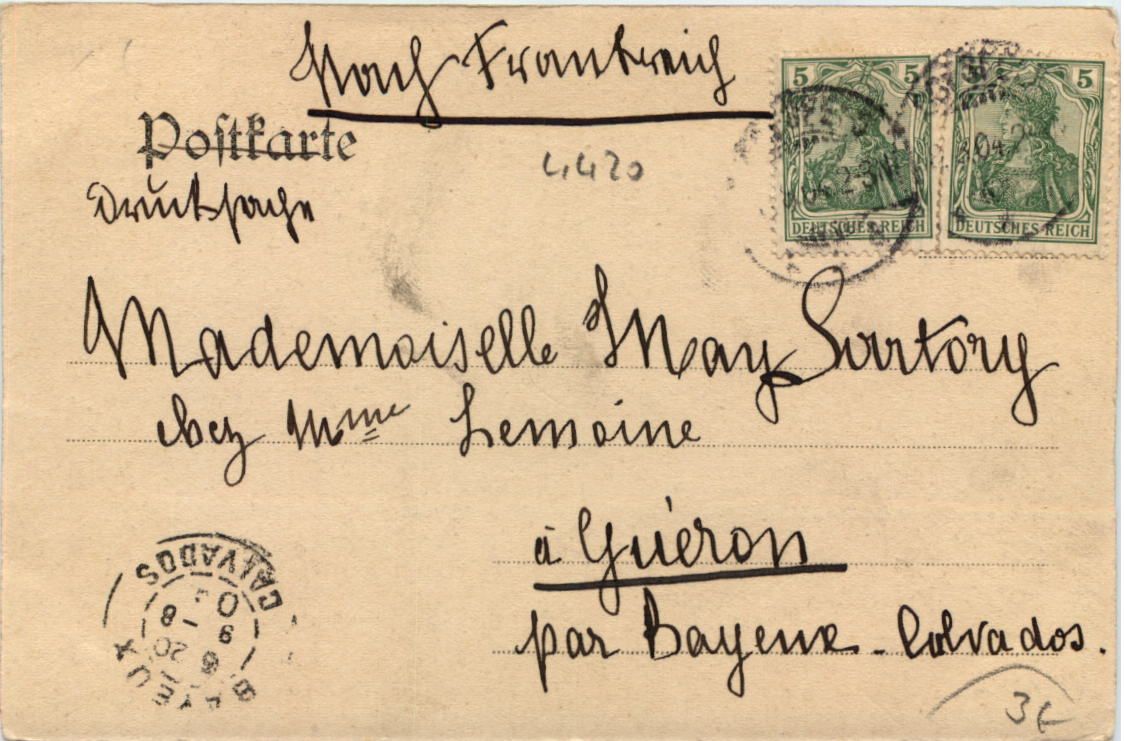 Nach Frankreich
Postkarte
Drucksache
4420
5 5
DEUTSCHES REICH
5
DEUTSCHES REICH
Mademoiselle May Sartory
chez Mme Lemoine
à Guéron
par Bayeux - Calvados.
BAYEUX
CALVADOS
3€